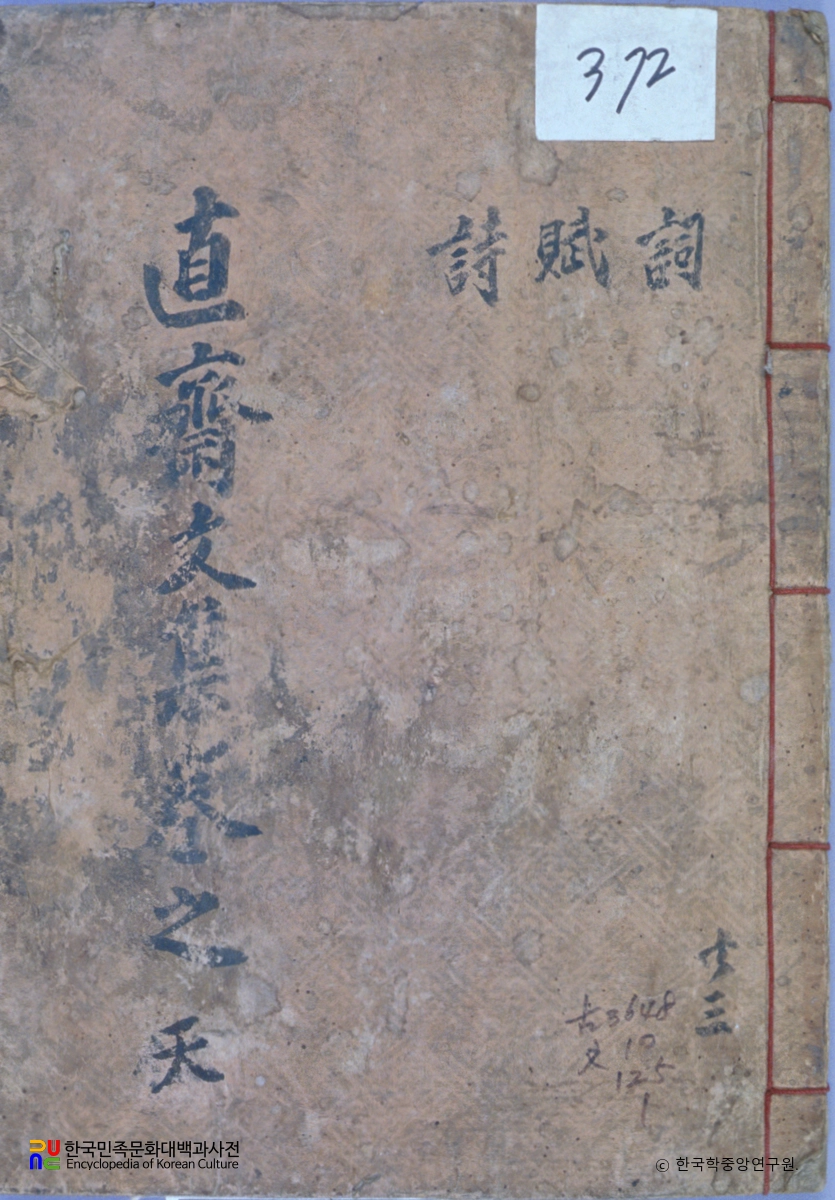 372
詞 賦 詩
直齋文集卷之 天
共三
古3648
文 10
125
1
한국민족문화대백과사전
Encyclopedia of Korean Culture
© 한국학중앙연구원